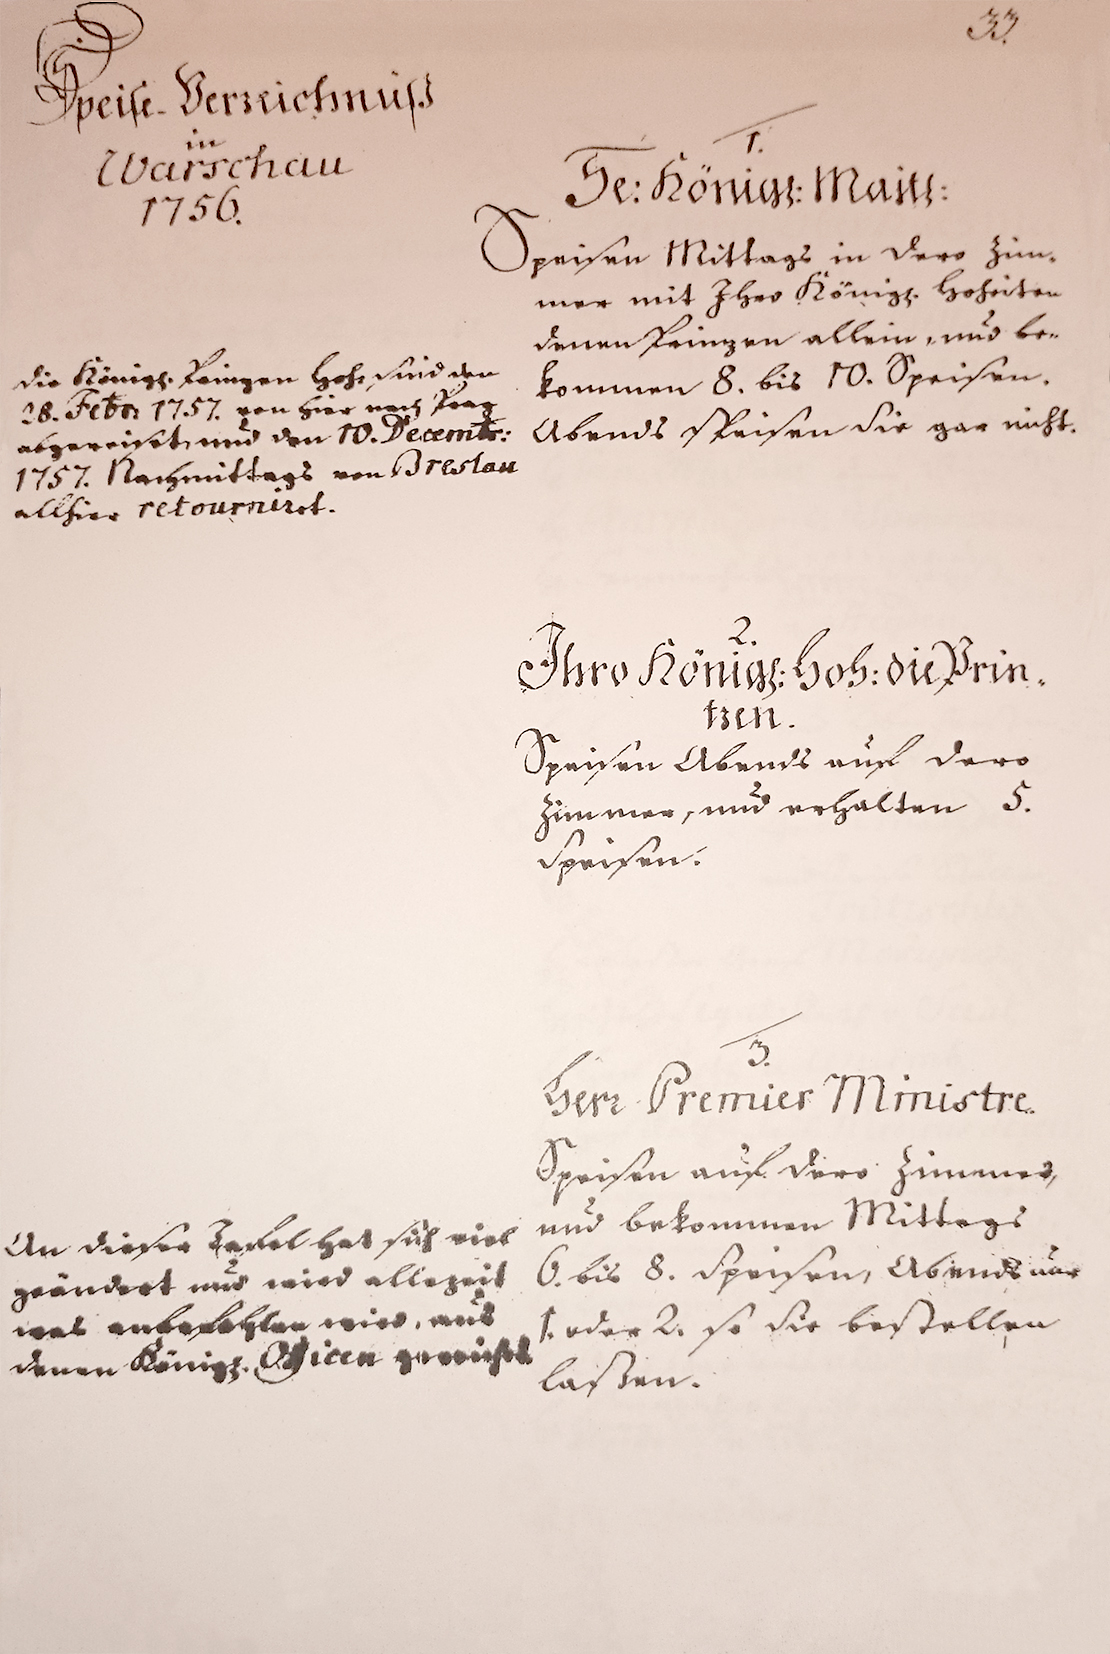 33.
Speise-Verzeichnuß
in
Warschau
1756.
1.
Se: Königl: Maitt:
Speisen Mittags in dero Zim-
mer mit Ihro Königl. Hoheiten
denen Prinzen allein, und be-
kommen 8. bis 10. Speisen.
Abends speisen sie gar nicht.
die Königl. Prinzen Hoh. sind den
28. Febr: 1757. von hier nach Prag
abgereiset, und den 10. Decembr:
1757. Nachmittags von Breslau
allhier retourniret.
2.
Ihro Königl: Hoh: die Prin-
tzen.
Speisen Abends auf dero
Zimmer, und erhalten 5.
Speisen.
3.
Herr Premier Ministre.
Speisen auf dero Zimmer,
und bekommen Mittags
6. bis 8. Speisen, Abends nur
1. oder 2. so sie bestellen
laßen.
An dieser Tafel hat sich viel
geändert und wird allezeit
was anbefohlen wird, aus
denen Königl. Officen gereicht